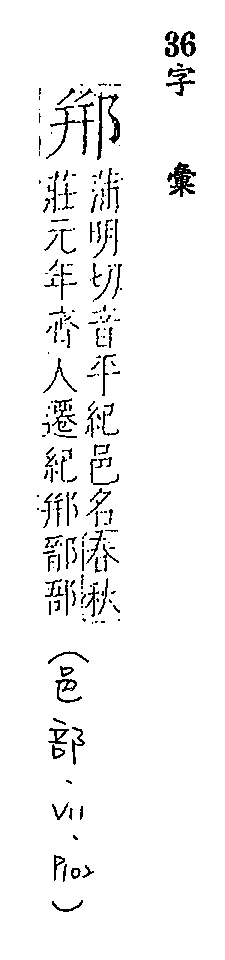 36字彙
郱
蒲明切音平紀邑名春秋
莊元年齊人遷紀郱鄑郚
(邑部、VII、P102)